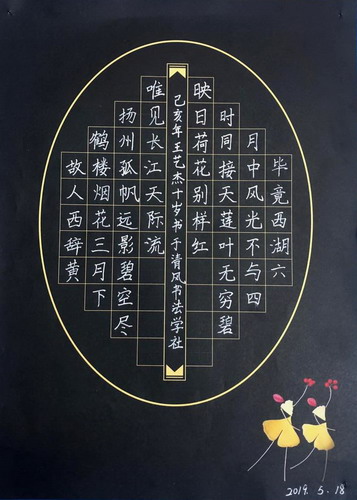 毕竟西湖六
月中风光不与四
时同接天莲叶无穷碧
映日荷花别样红
故人西辞黄
鹤楼烟花三月下
扬州孤帆远影碧空尽
唯见长江天际流
己亥年王艺杰十岁书于清风书法学社
2019.5.18